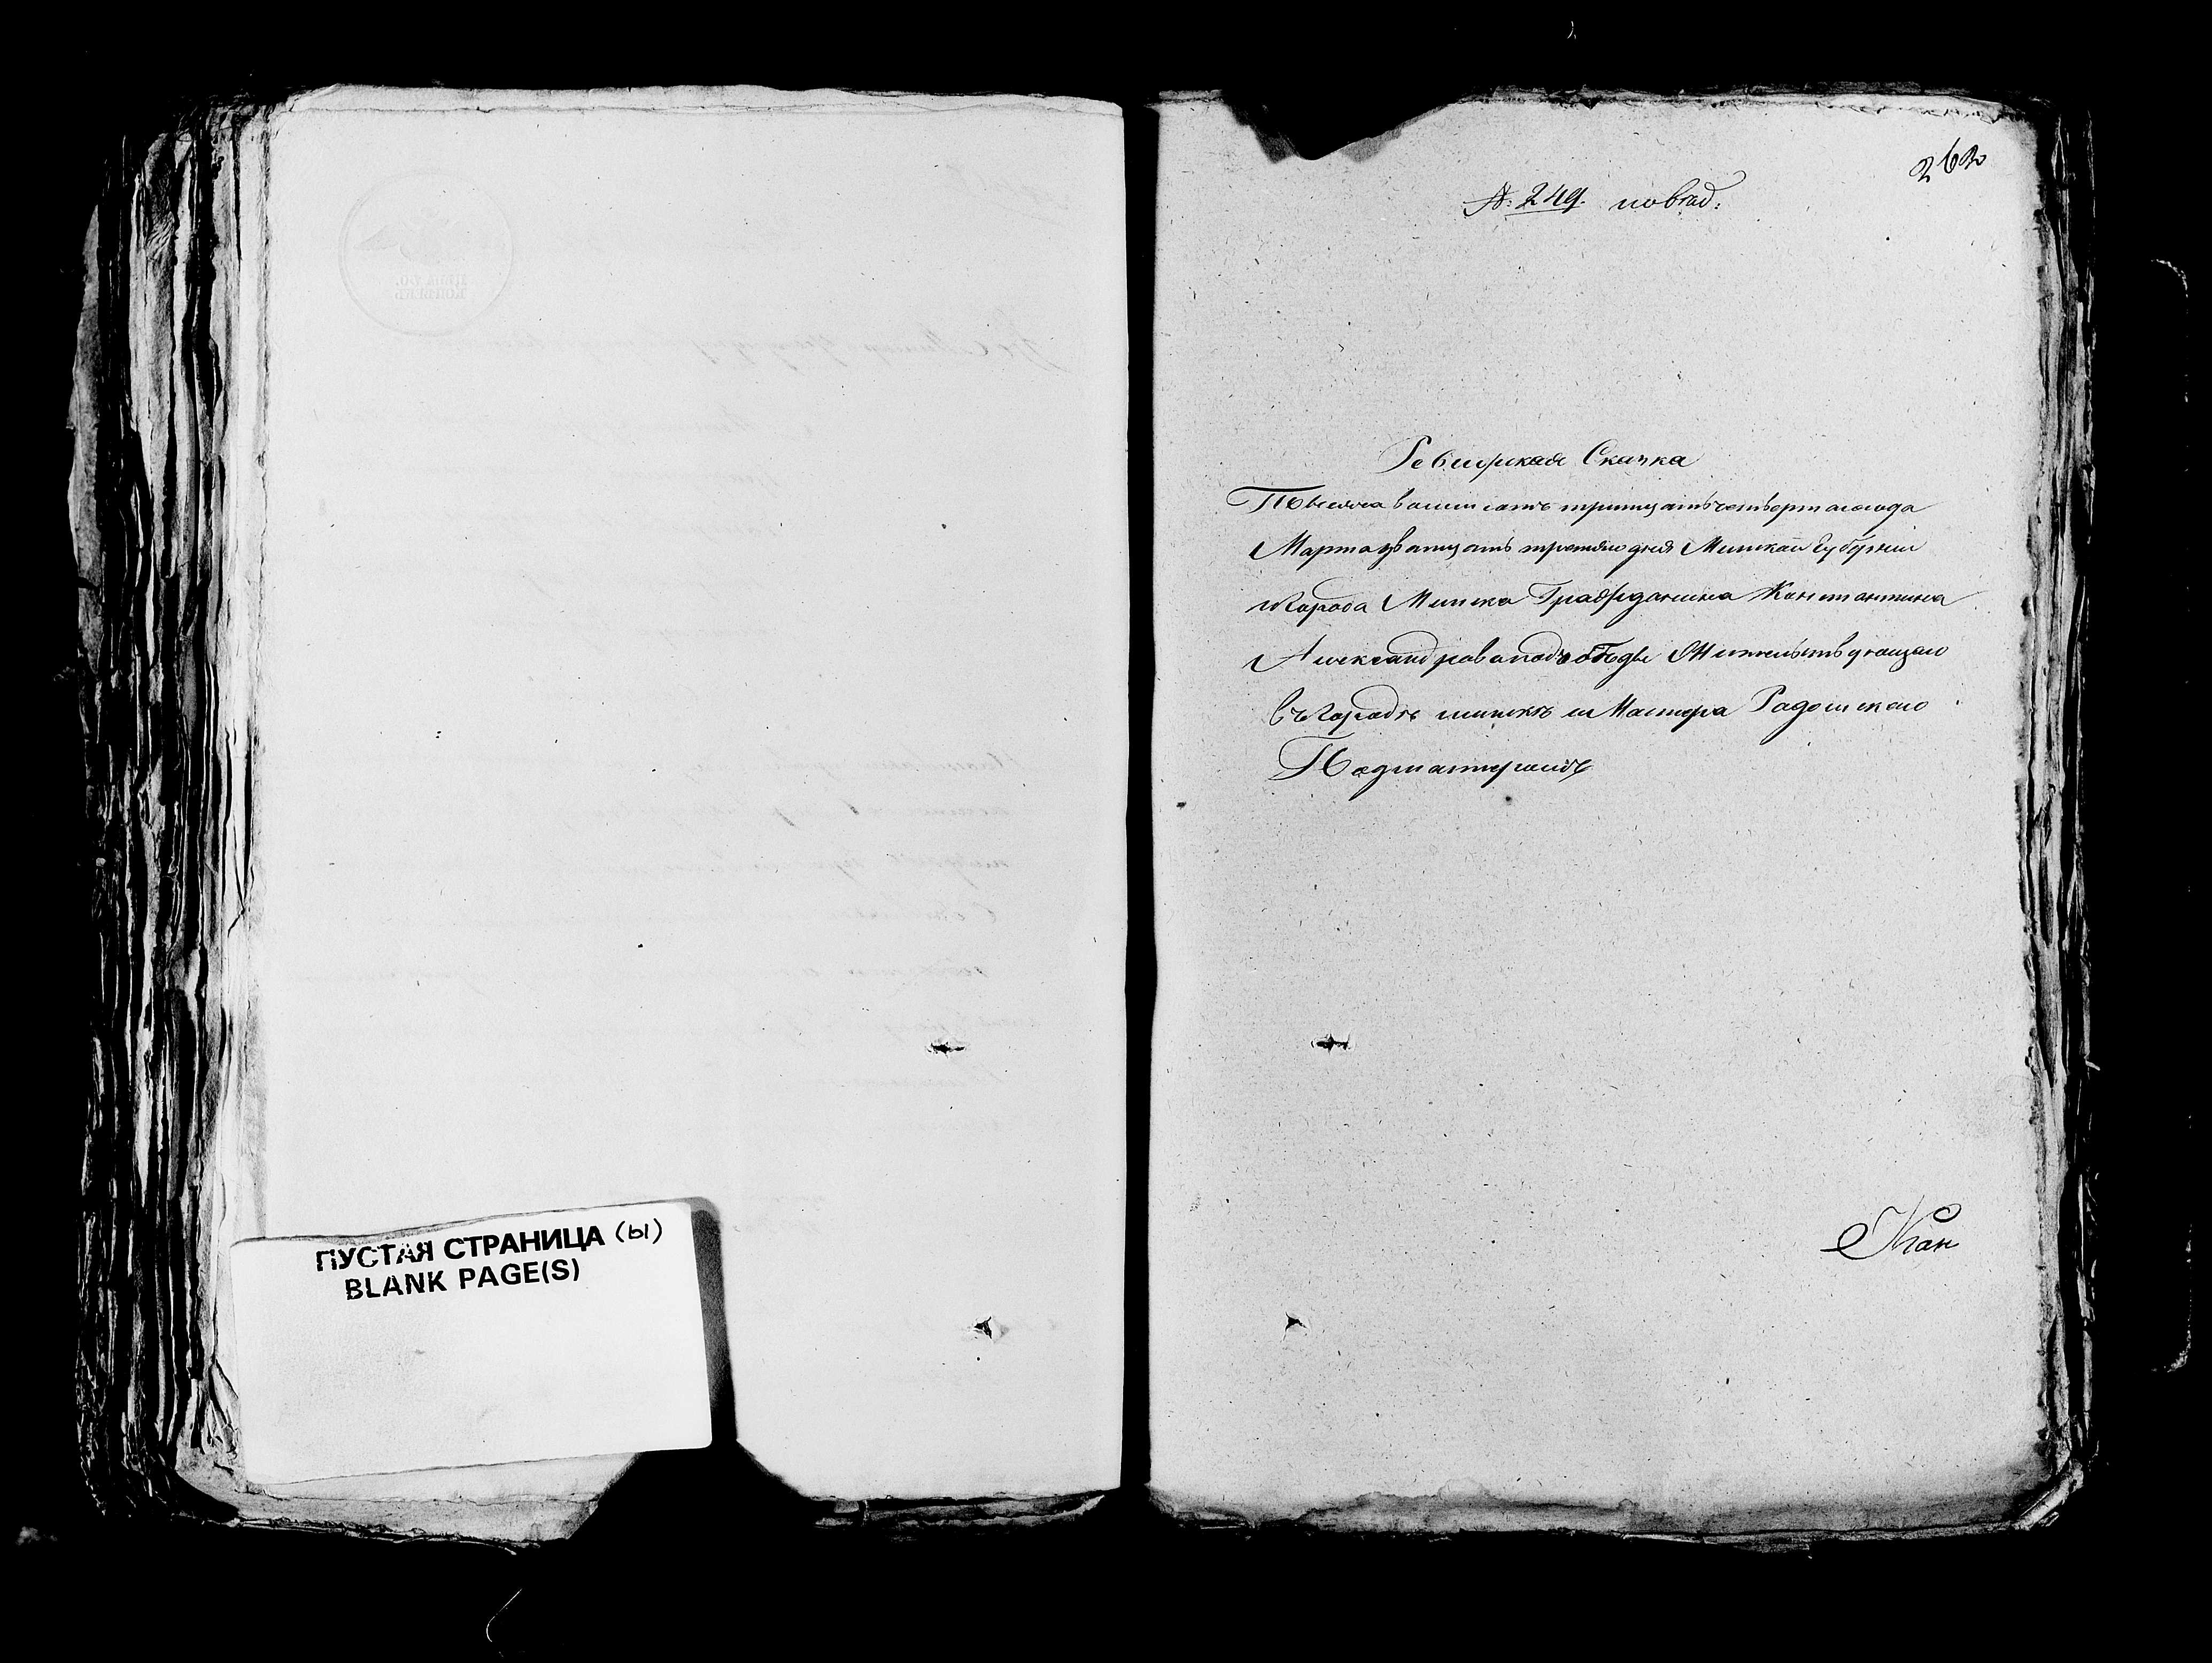 ПУСТАЯ СТРАНИЦА (ы)
BLANK PAGE(S)
262
№: 249. повѣд:
Ревизская Скачка
Тысеча восимсатъ тритцатъ четвертагогода
Марта дватцатъ третяго дня Минскай Губернии
иГорода Минска Гражданина Канстантина
Александрова победы Жителствующаго
въГорадѣ минскѣ и Мастера
Падмастеромъ
Кан